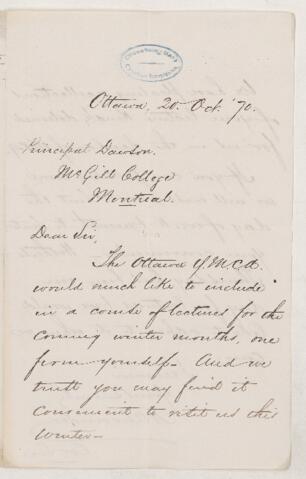 Ottawa, 20. Oct. '70.
Principal Dawson.
McGill College
Montreal.
Dear Sir,
The Ottawa Y.M.C.A.
would much like to include
in a course of lectures for the
coming winter months, one
from yourself— And we
trust you may find it
convenient to visit us this
winter—